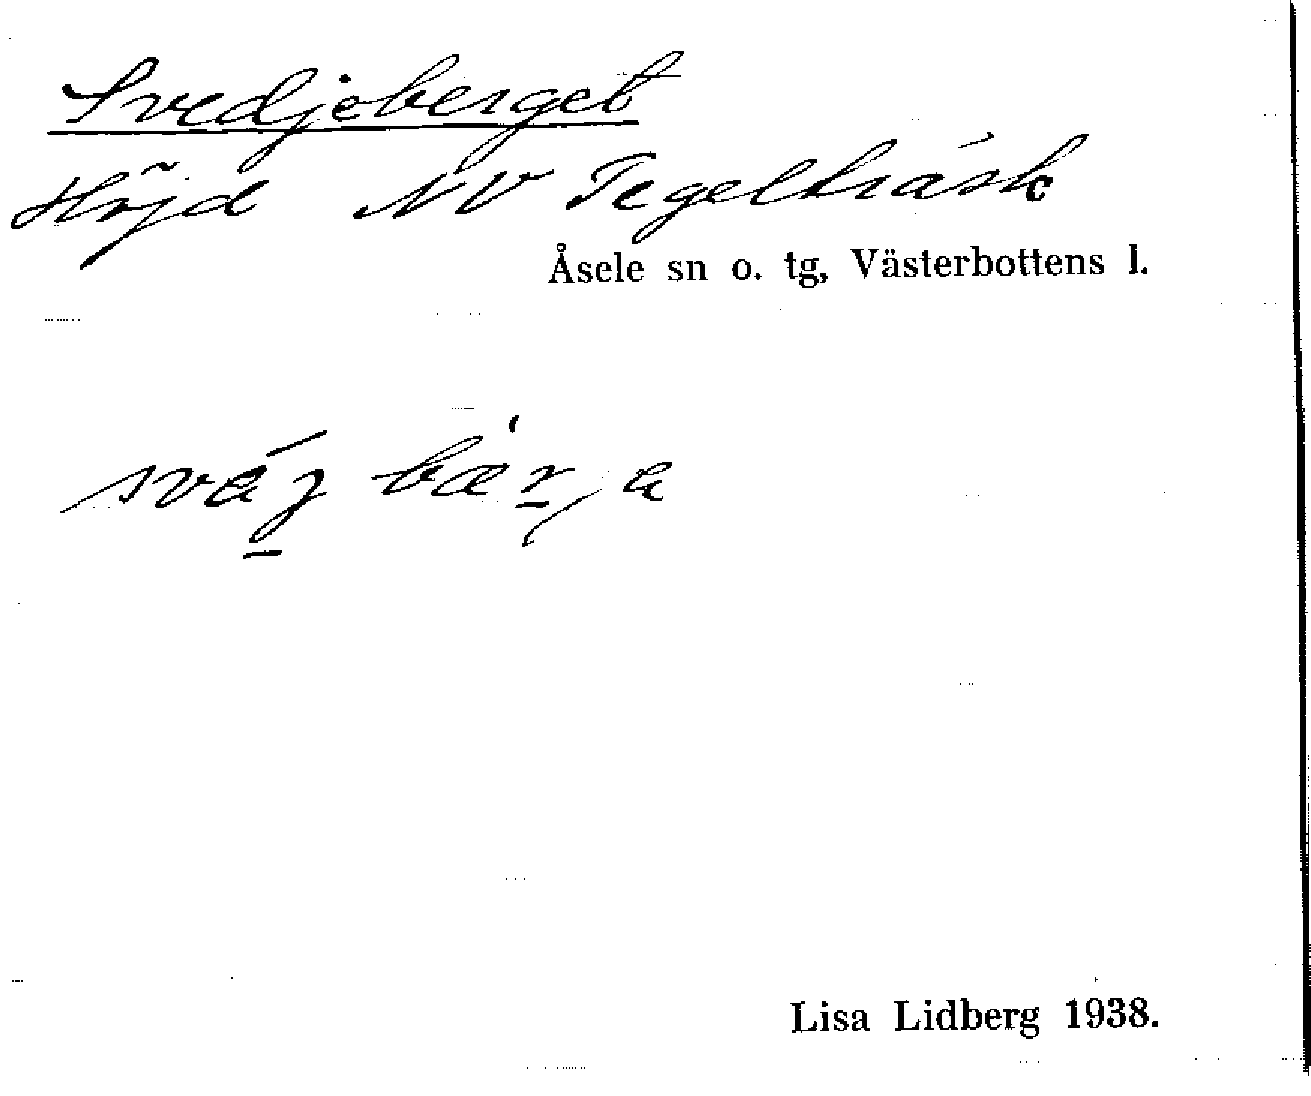 Svedjeberget
Höjd NV Tegelträsk
Åsele sn o. tg, Västerbottens l.
Lisa Lidberg 1938.